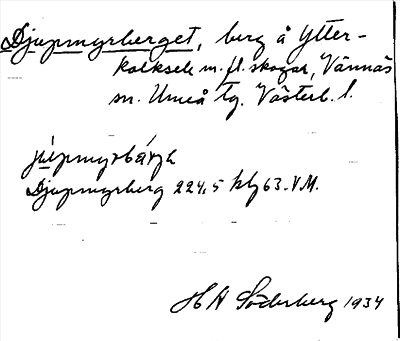 Djupmyrberget, berg å Ytter-
kolksele m. fl. skogar, Vännäs
sn. Umeå tg. Västerb. l.
Djupmyrberg 224,5 kbg 63. V.M.
H A Söderberg 1934